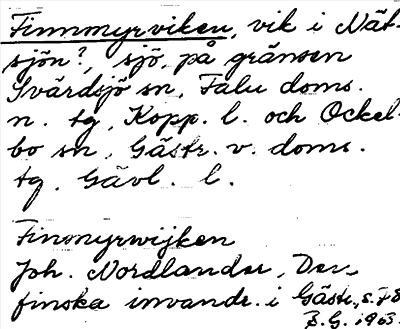 Finnmyrviken, vik i Nät-
sjön?, sjö, på gränsen
Svärdsjö sn, Falu doms.
n. tg, Kopp. l. och Ockel-
bo sn, Gästr. v. doms.
tg. Gävl. l.
Finnmyrwijken
Joh. Nordlander, Den
finska invandr. i Gästr., s. 78
B.G. 1963.